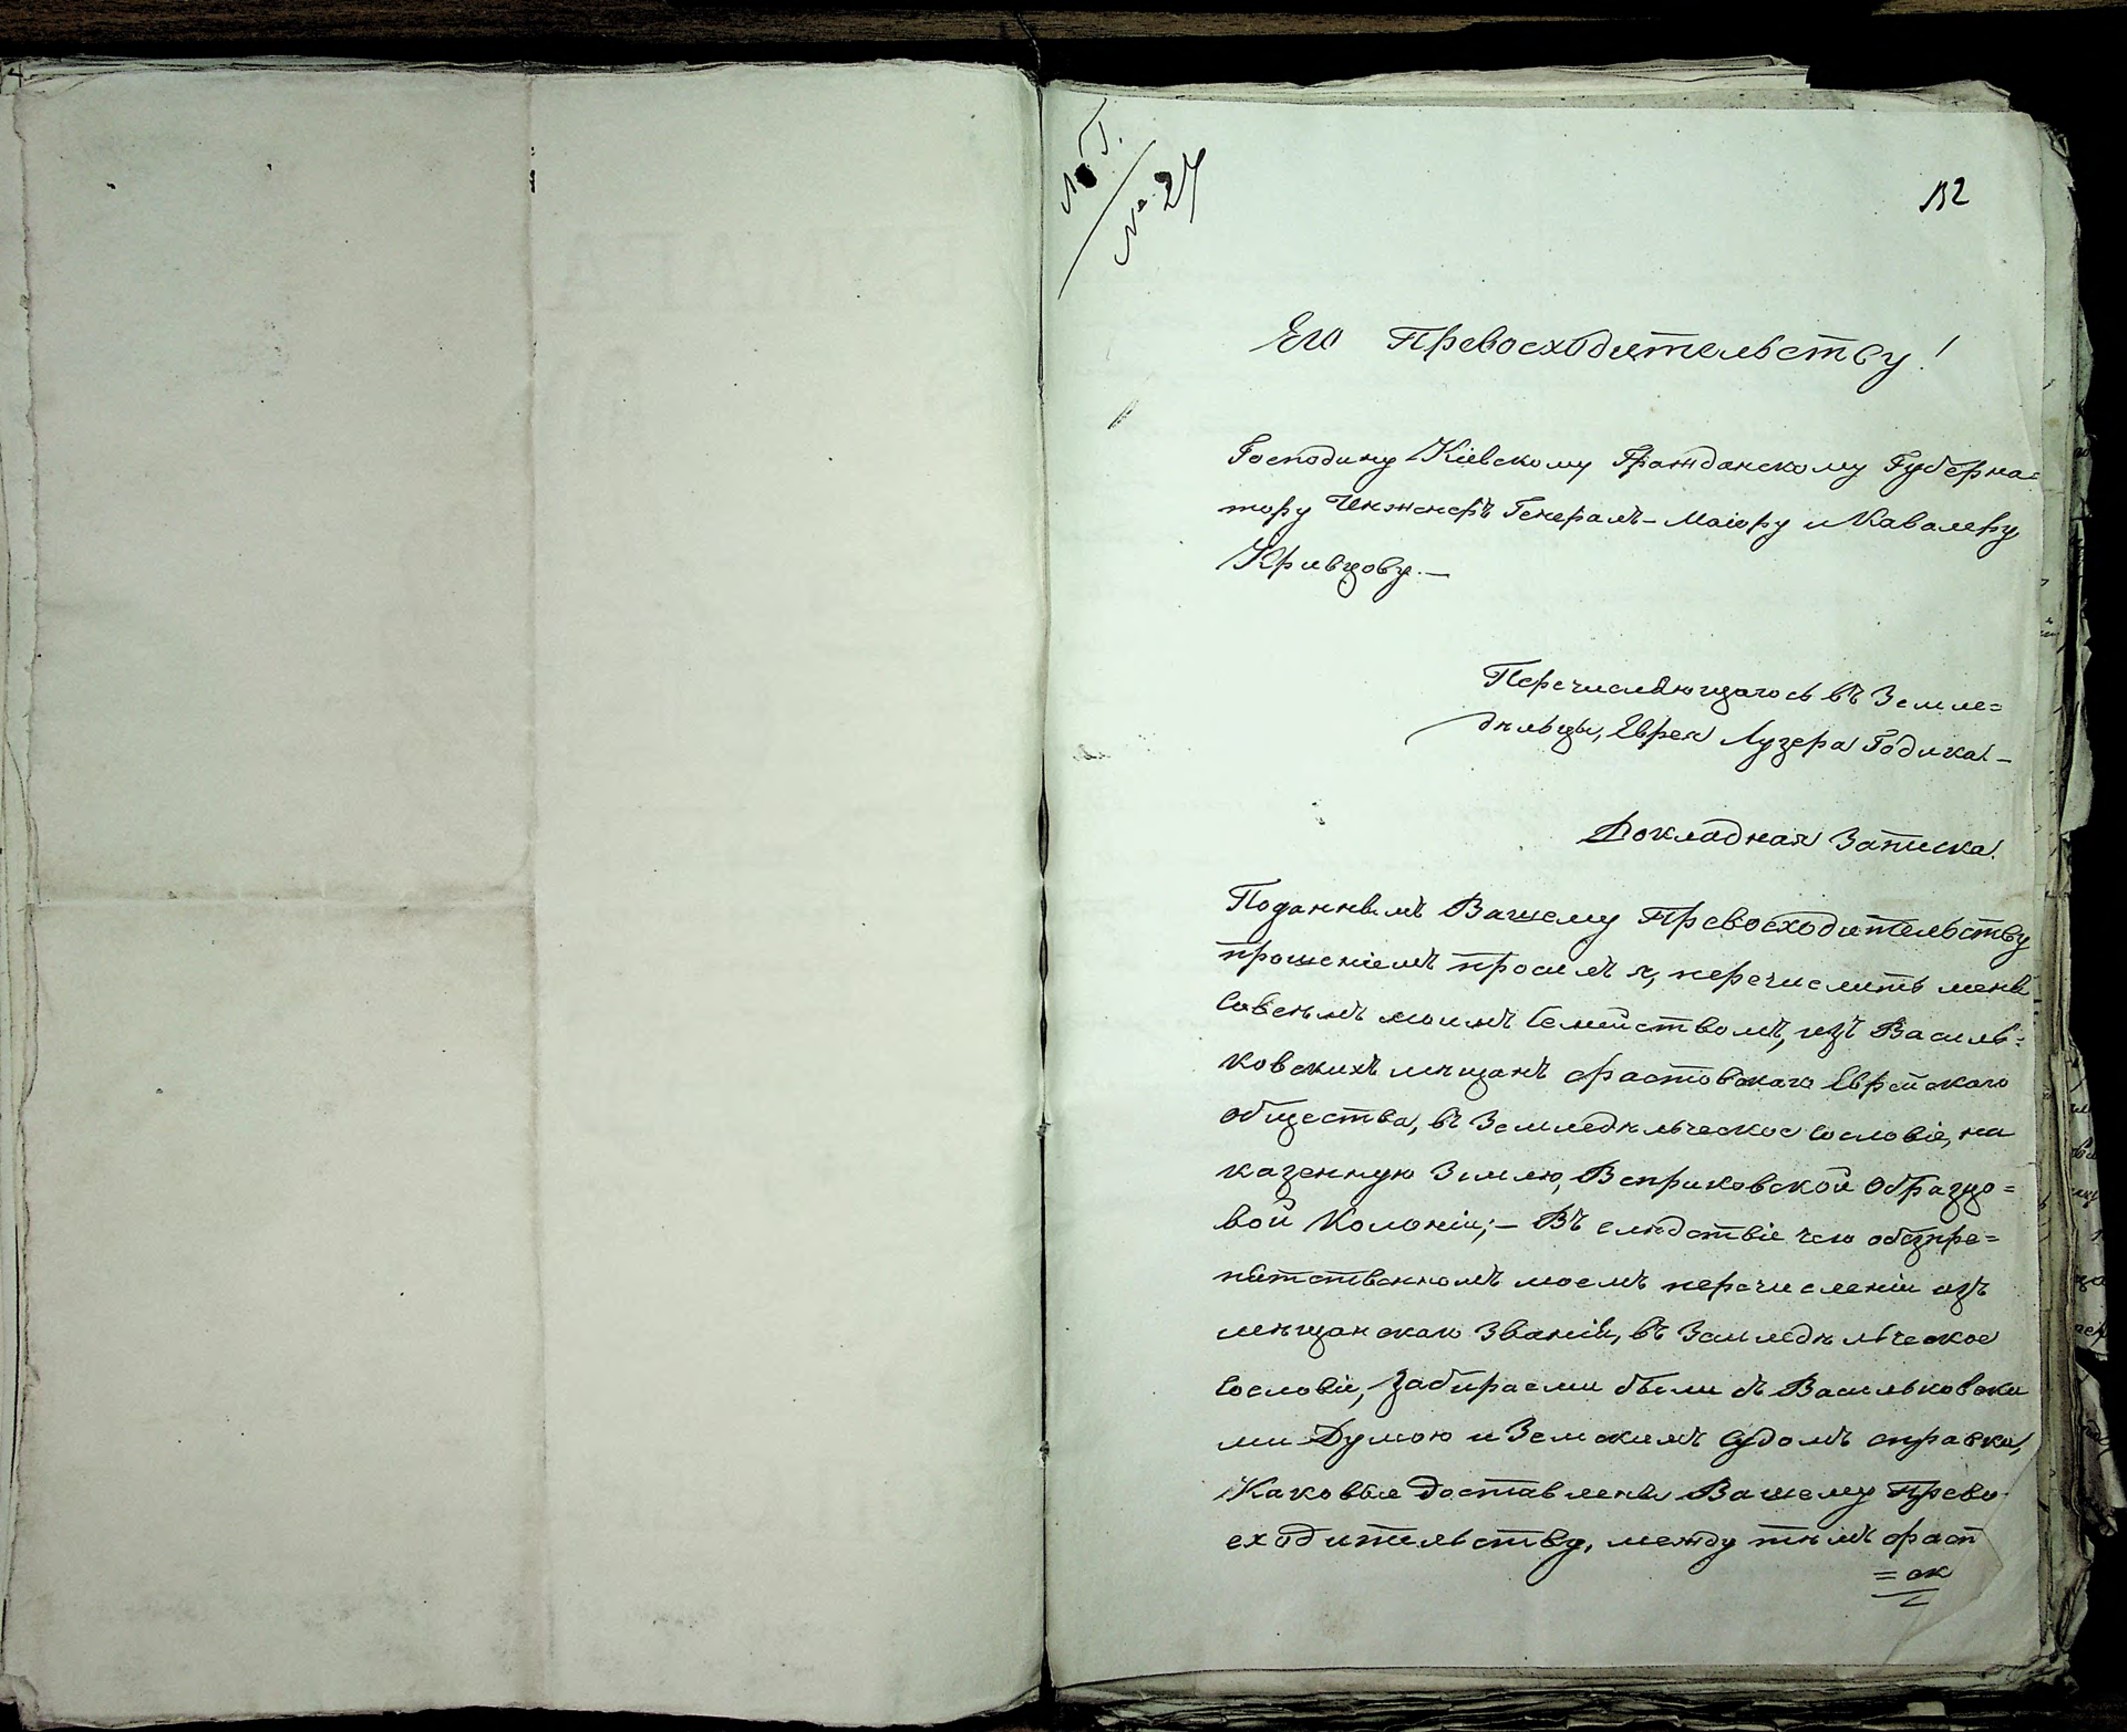 № 27
132
Его Превосходительству!
Господину Кіевскому Гражданскому Губерна=
тору Инженеръ Генералъ-Маіору и Кавалеру
Кривцову.—
Перечисляющагося въ Земле=
дѣльцы, Еврея Лузера Годика.—
Докладная Записка.
Поданнымъ Вашему Превосходительству
прошеніемъ просилъ я, перечислить меня
совсѣмъ моимъ Семействомъ, изъ Василь=
ковскихъ мѣщанъ фастовскаго Еврейскаго
общества, въ Земледѣльческое сословіе, на
казенную Землю, Веприковской Образцо=
вой Колоніи;— Въ слѣдствіе чего обезпре=
пятственномъ моемъ перечисленіи изъ
мѣщанскаго Званія, въ Земледѣльческое
Сословіе, Забираеми были съ Васильковски
ми Думою и Земскимъ судомъ справки,
Каковые доставлены Вашему Прево
сходительству, между тѣмъ фаст
=ск